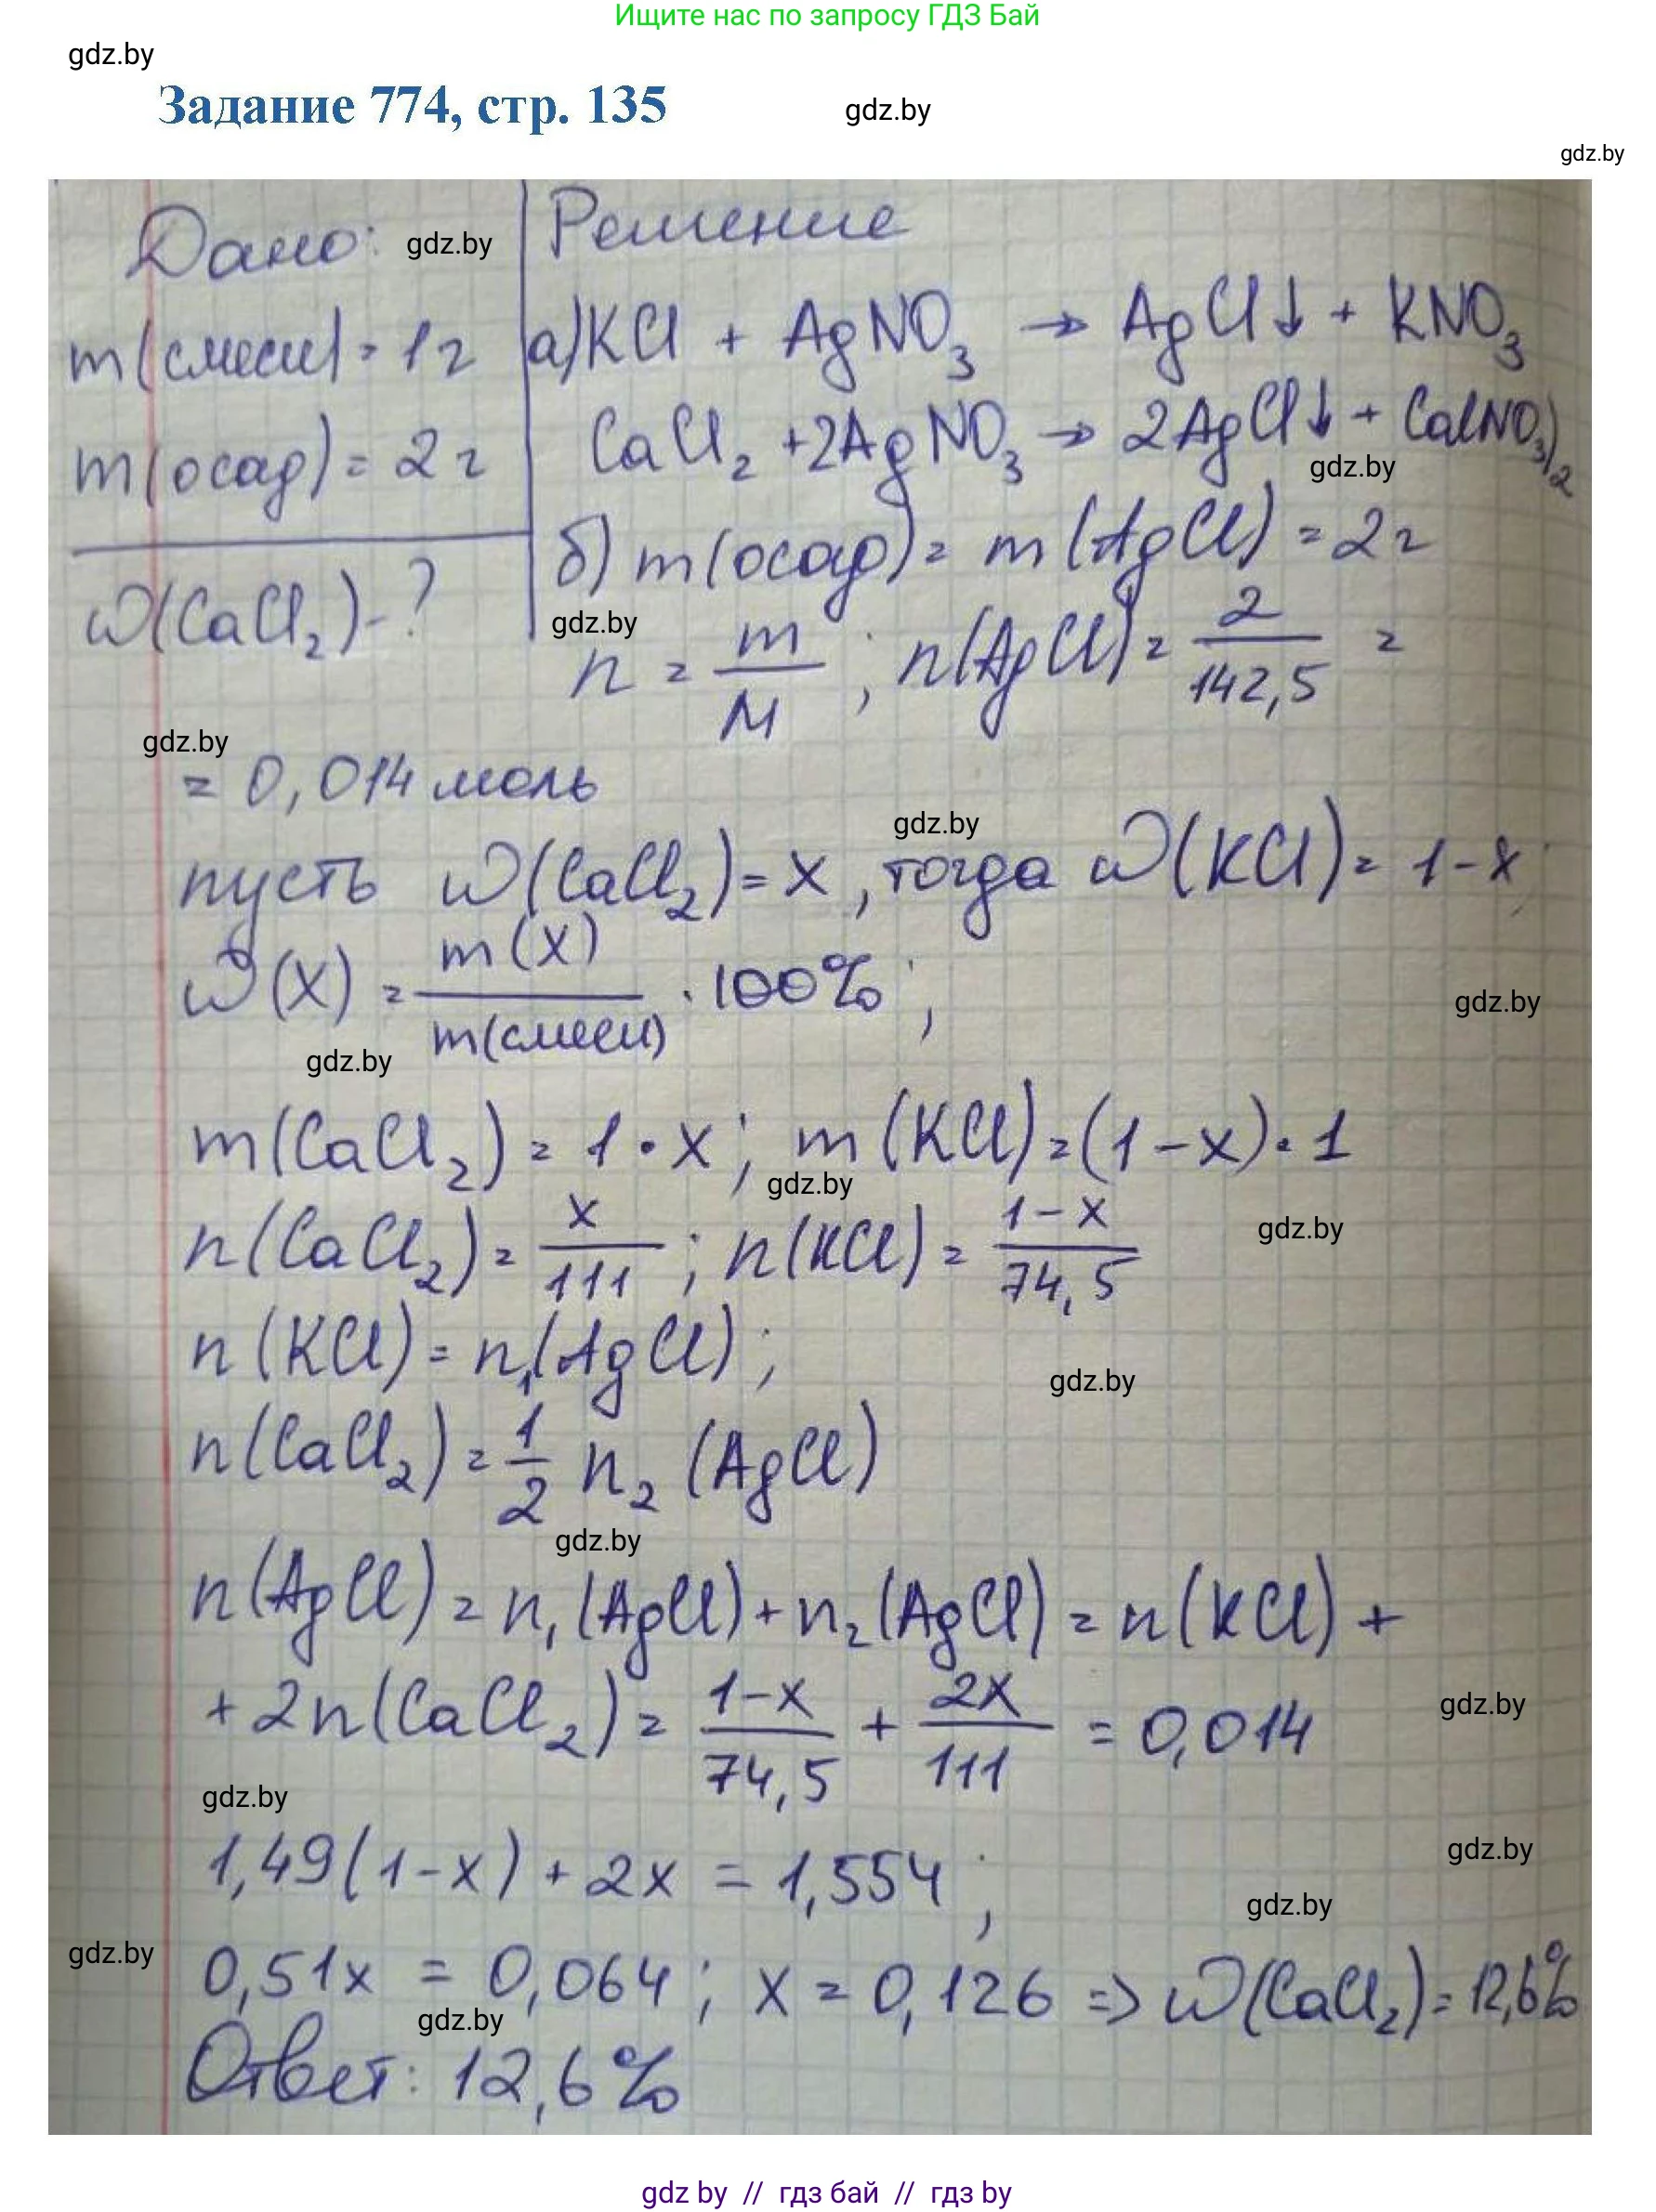 Ищите нас по запросу ГДЗ Бай
gdz.by
Задание 774, стр. 135
gdz.by
gdz.by
Дано: gdz.by
Решение
m(смеси) = 1г
а) KCl + AgNO₃ → AgCl↓ + KNO₃
m(осад) = 2г
CaCl₂ + 2AgNO₃ → 2AgCl↓ + Ca(NO₃)₂
gdz.by
ω(CaCl₂) - ?
б) m(осад) = m(AgCl) = 2г
gdz.by
n = m/M ; n(AgCl) = 2/142,5 =
gdz.by
= 0,014 моль
gdz.by
пусть ω(CaCl₂) = x, тогда ω(KCl) = 1-x;
ω(X) = m(X)/m(смеси) · 100%;
gdz.by
gdz.by
m(CaCl₂) = 1·x; m(KCl) = (1-x)·1
gdz.by
n(CaCl₂) = x/111 ; n(KCl) = 1-x/74,5
gdz.by
n(KCl) = n₁(AgCl);
gdz.by
n(CaCl₂) = 1/2 n₂ (AgCl)
gdz.by
n(AgCl) = n₁(AgCl) + n₂(AgCl) = n(KCl) +
+ 2n(CaCl₂) = 1-x/74,5 + 2x/111 = 0,014
gdz.by
gdz.by
1,49(1-x) + 2x = 1,554;
gdz.by
gdz.by
gdz.by
0,51x = 0,064; x = 0,126 => ω(CaCl₂) = 12,6%
gdz.by
Ответ: 12,6%
gdz by // гдз бай // гдз by